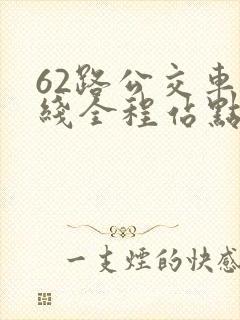 62路公交車
綫全程佔點
一支煙的快感